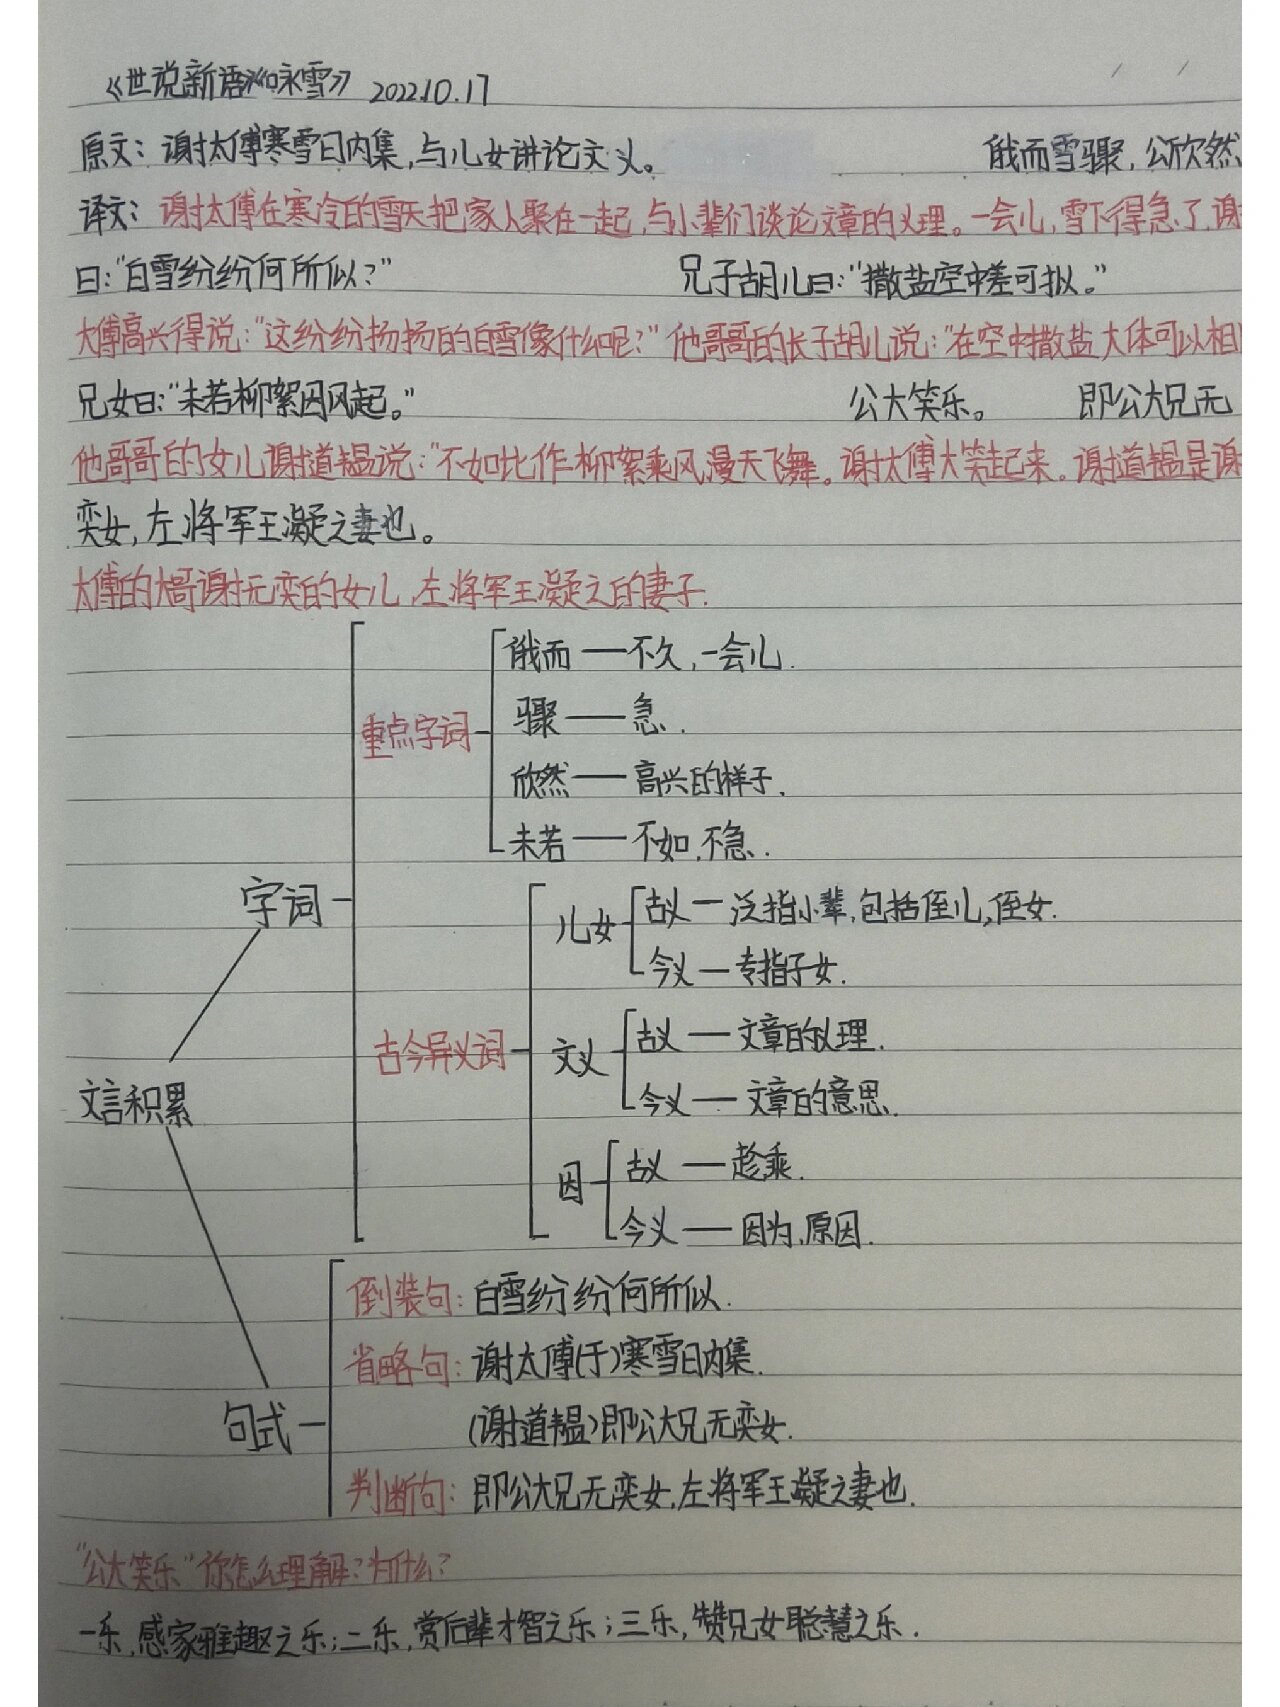 《世说新语》《咏雪》 2022.10.17
原文：谢太傅寒雪日内集,与儿女讲论文义。 俄而雪骤,公欣然
译文：谢太傅在寒冷的雪天把家人聚在一起,与小辈们谈论文章的义理。一会儿,雪下得急了,谢
曰："白雪纷纷何所似?" 兄子胡儿曰："撒盐空中差可拟。"
太傅高兴得说："这纷纷扬扬的白雪像什么呢?"他哥哥的长子胡儿说："在空中撒盐大体可以相
兄女曰："未若柳絮因风起。" 公大笑乐。 即公大兄无
他哥哥的女儿谢道韫说："不如比作柳絮乘风漫天飞舞。谢太傅大笑起来。谢道韫是谢
奕女,左将军王凝之妻也。
太傅的大哥谢无奕的女儿,左将军王凝之的妻子.
俄而——不久,一会儿.
骤——急.
重点字词
欣然——高兴的样子.
未若——不如,不急.
字词
儿女
古义—泛指小辈,包括侄儿,侄女.
今义—专指子女.
古今异义词
文义
古义—文章的义理.
今义—文章的意思.
文言积累
因
古义—趁乘.
今义—因为,原因.
倒装句：白雪纷纷何所似.
省略句：谢太傅(于)寒雪日内集.
句式
(谢道韫)即公大兄无奕女.
判断句：即公大兄无奕女,左将军王凝之妻也.
"公大笑乐"你怎么理解?为什么?
一乐,感家雅趣之乐;二乐,赏后辈才智之乐;三乐,赞兄女聪慧之乐.